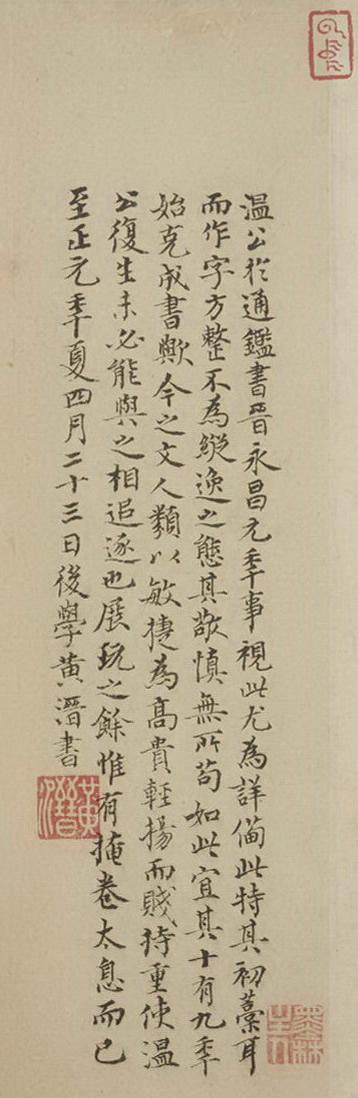 温公於通鑑書晉永昌元年事視此尤為詳備此特其初藁耳
而作字方整不為縱逸之態其敬慎無所苟如此宜其十有九年
始克成書歟今之文人類以敏捷為高貴輕揚而賤持重使温
公復生未必能與之相追逐也展玩之餘惟有掩卷太息而已
至正元年夏四月二十三日後學黃溍書
黃溍